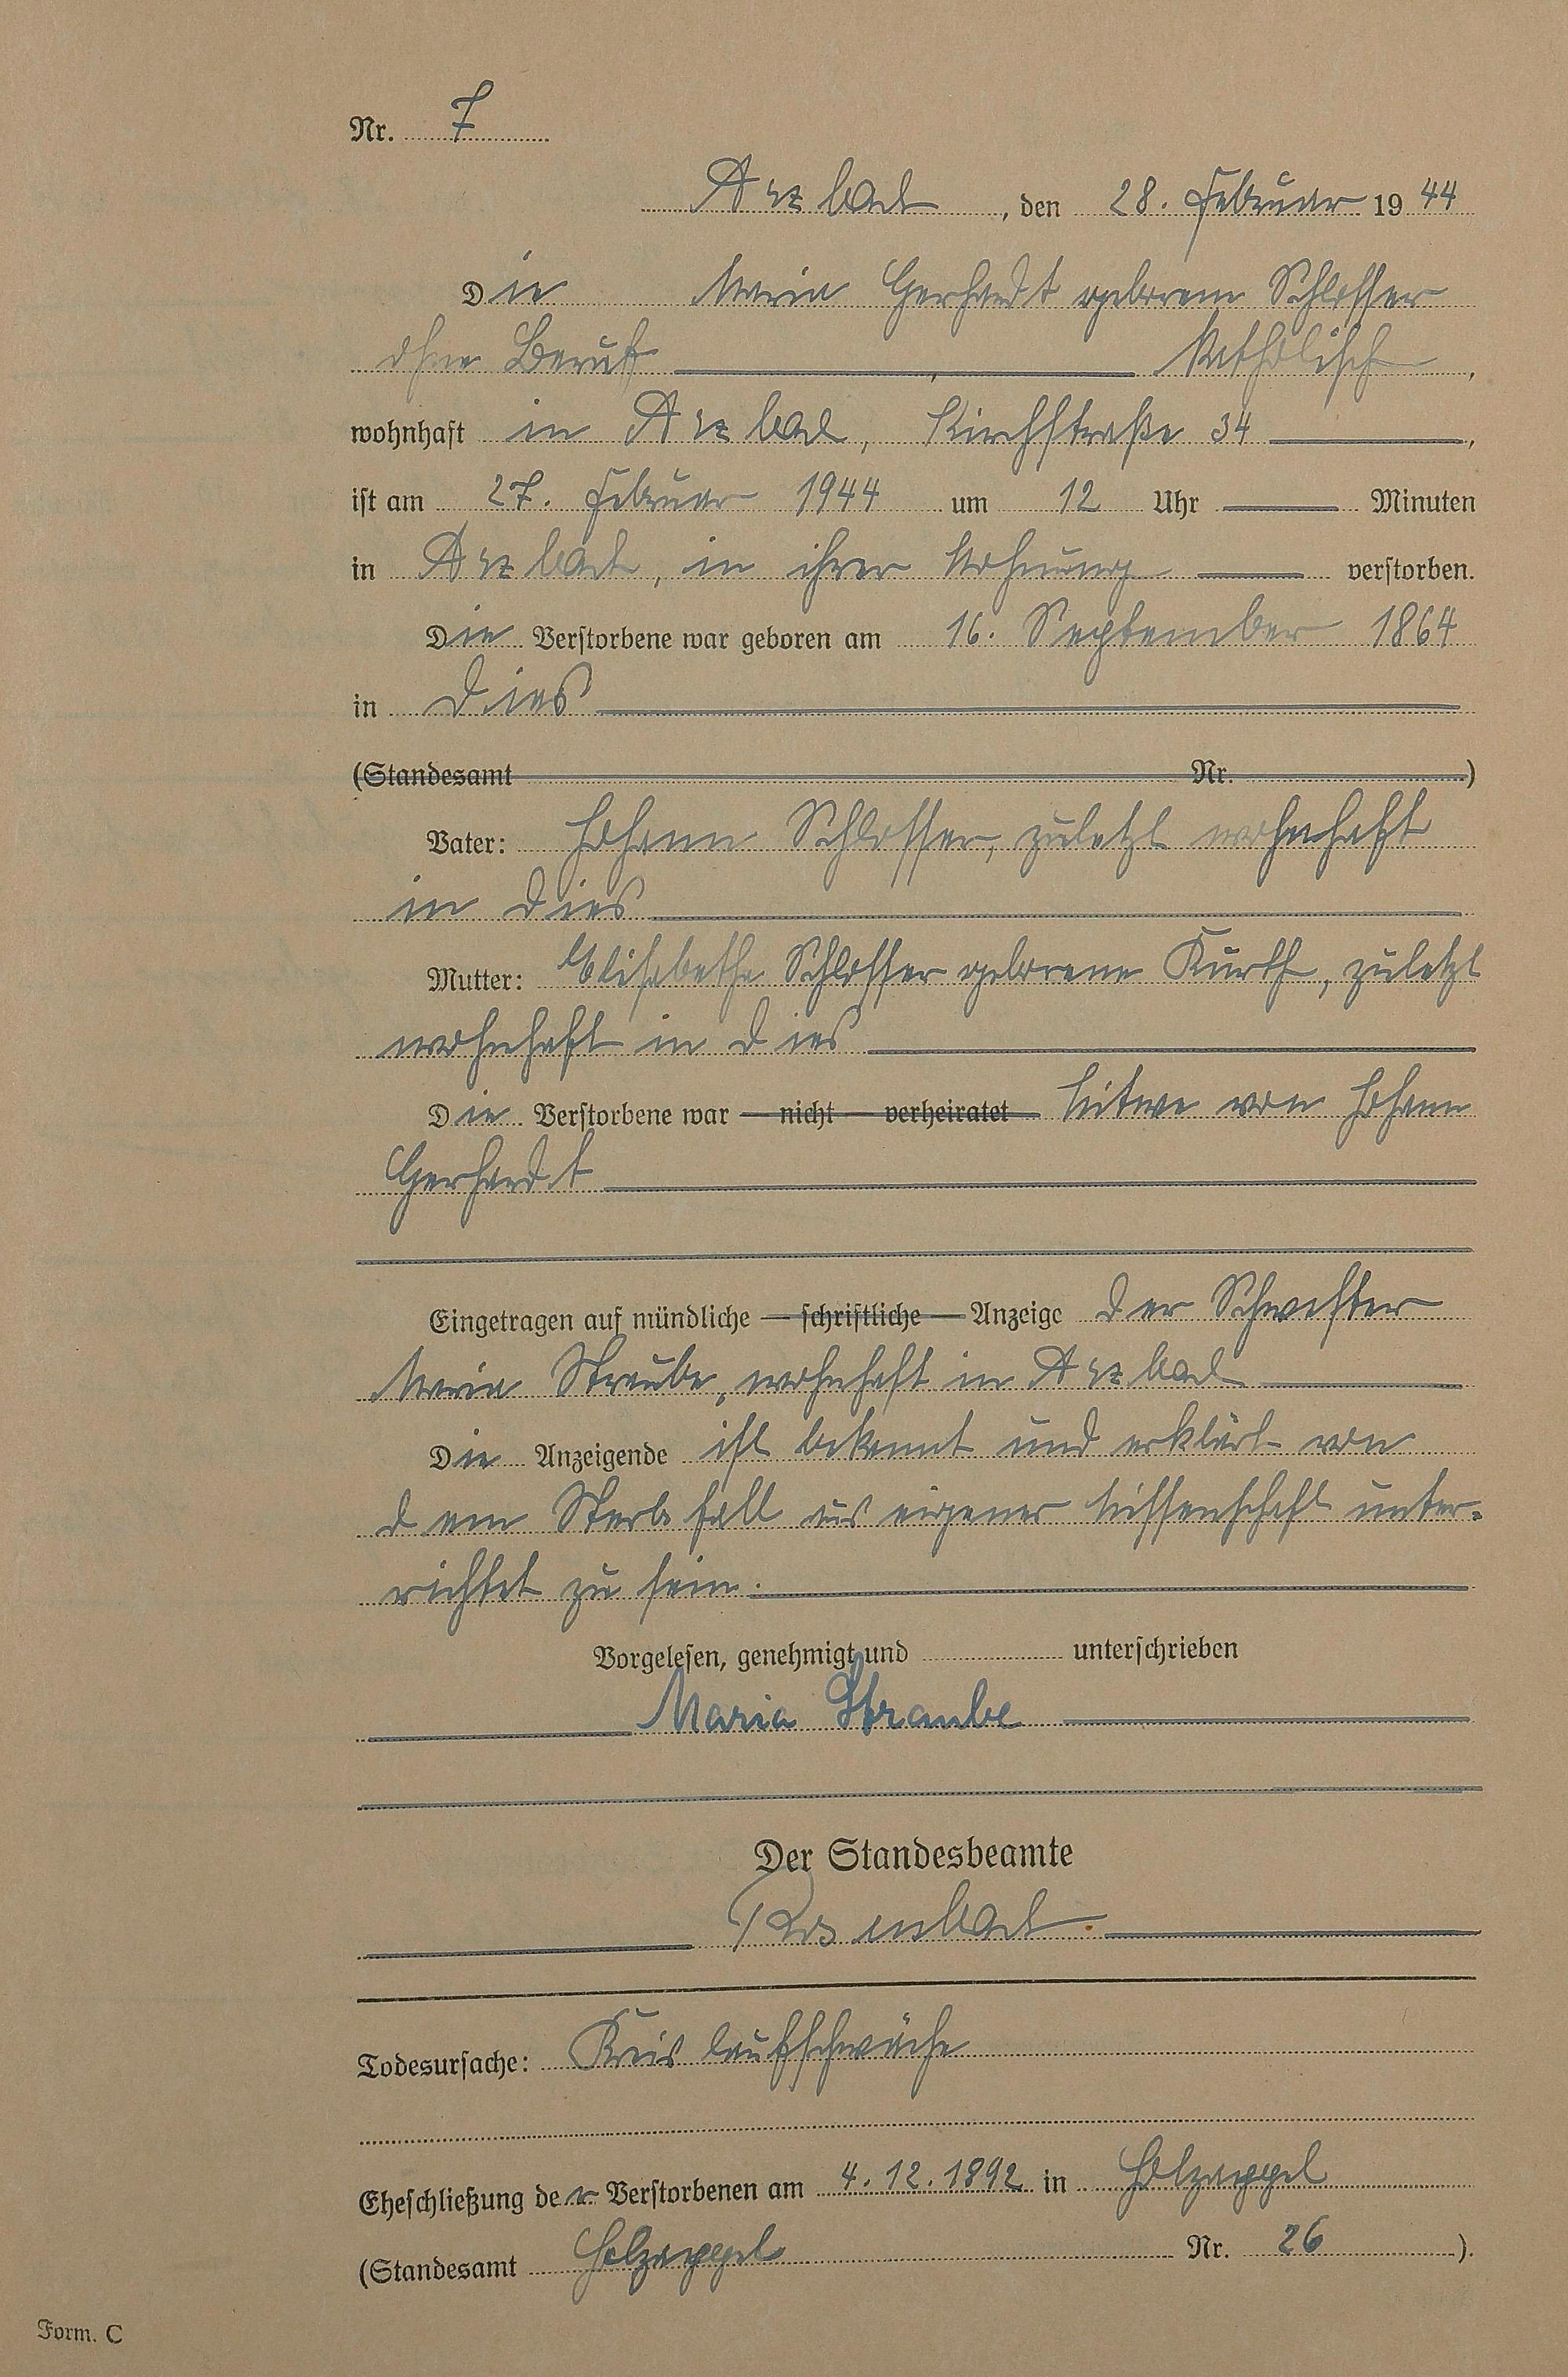 Nr. 7
Arzbach, den 28. Februar 1944
Die Maria Gerhardt geborene Schlosser
ohne Beruf, katholisch,
wohnhaft in Arzbach, Kirchstraße 34,
ist am 27. Februar 1944 um 12 Uhr Minuten
in Arzbach, in ihrer Wohnung verstorben.
Die Verstorbene war geboren am 16. September 1864
in Dies
(Standesamt Nr. )
Vater: Johann Schlosser, zuletzt wohnhaft
in Dies
Mutter: Elisabetha Schlosser geborene Kurth, zuletzt
wohnhaft in Dies
Die Verstorbene war — nicht — verheiratet Witwe von Johann
Gerhardt
Eingetragen auf mündliche — schriftliche — Anzeige der Schwester
Maria Straube, wohnhaft in Arzbach
Die Anzeigende ist bekannt und erklärt von
dem Sterbefall aus eigener Wissenschaft unter-
richtet zu sein.
Vorgelesen, genehmigt und unterschrieben
Maria Straube
Der Standesbeamte
Rosenbach
Todesursache: Kreislaufschwäche
Eheschließung der Verstorbenen am 4.12.1892 in Holzappel
(Standesamt Holzappel Nr. 26 ).
Form. C